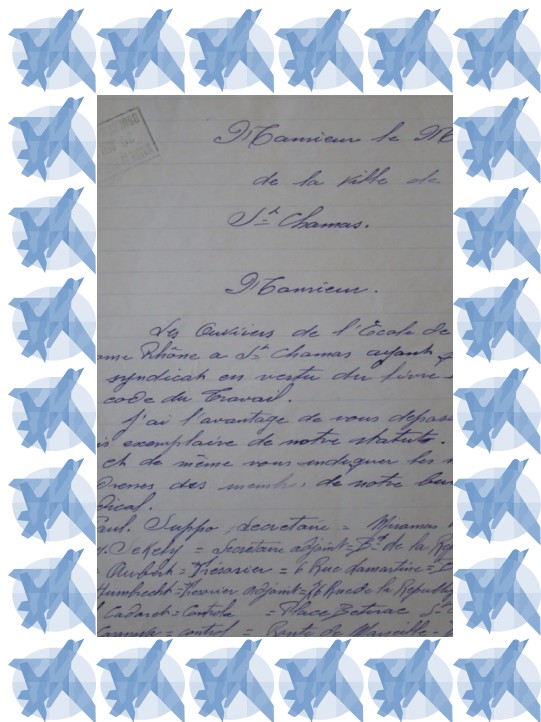 Monsieur le M
de la ville de
St Chamas.
Monsieur.
Les Ouvriers de l'École de
Rhône a St Chamas ayant
syndicat en vertu du livre
code du Travail.
J'ai l'avantage de vous déposer
exemplaire de notre statuts.
et de même vous indiquer les
dresses des memb. de notre bur
dical.
Paul. Suppo secretaire = Miramas
Sekely = Secretaire adjoint = Bd de la Rep
Aubert = Trésorier = 4 Rue Lamartine =
Humbrecht = Trésorier adjoint = 76 Rue de la Republiq
Cadaret = Controle = Place St
= control = Route de Marseille -